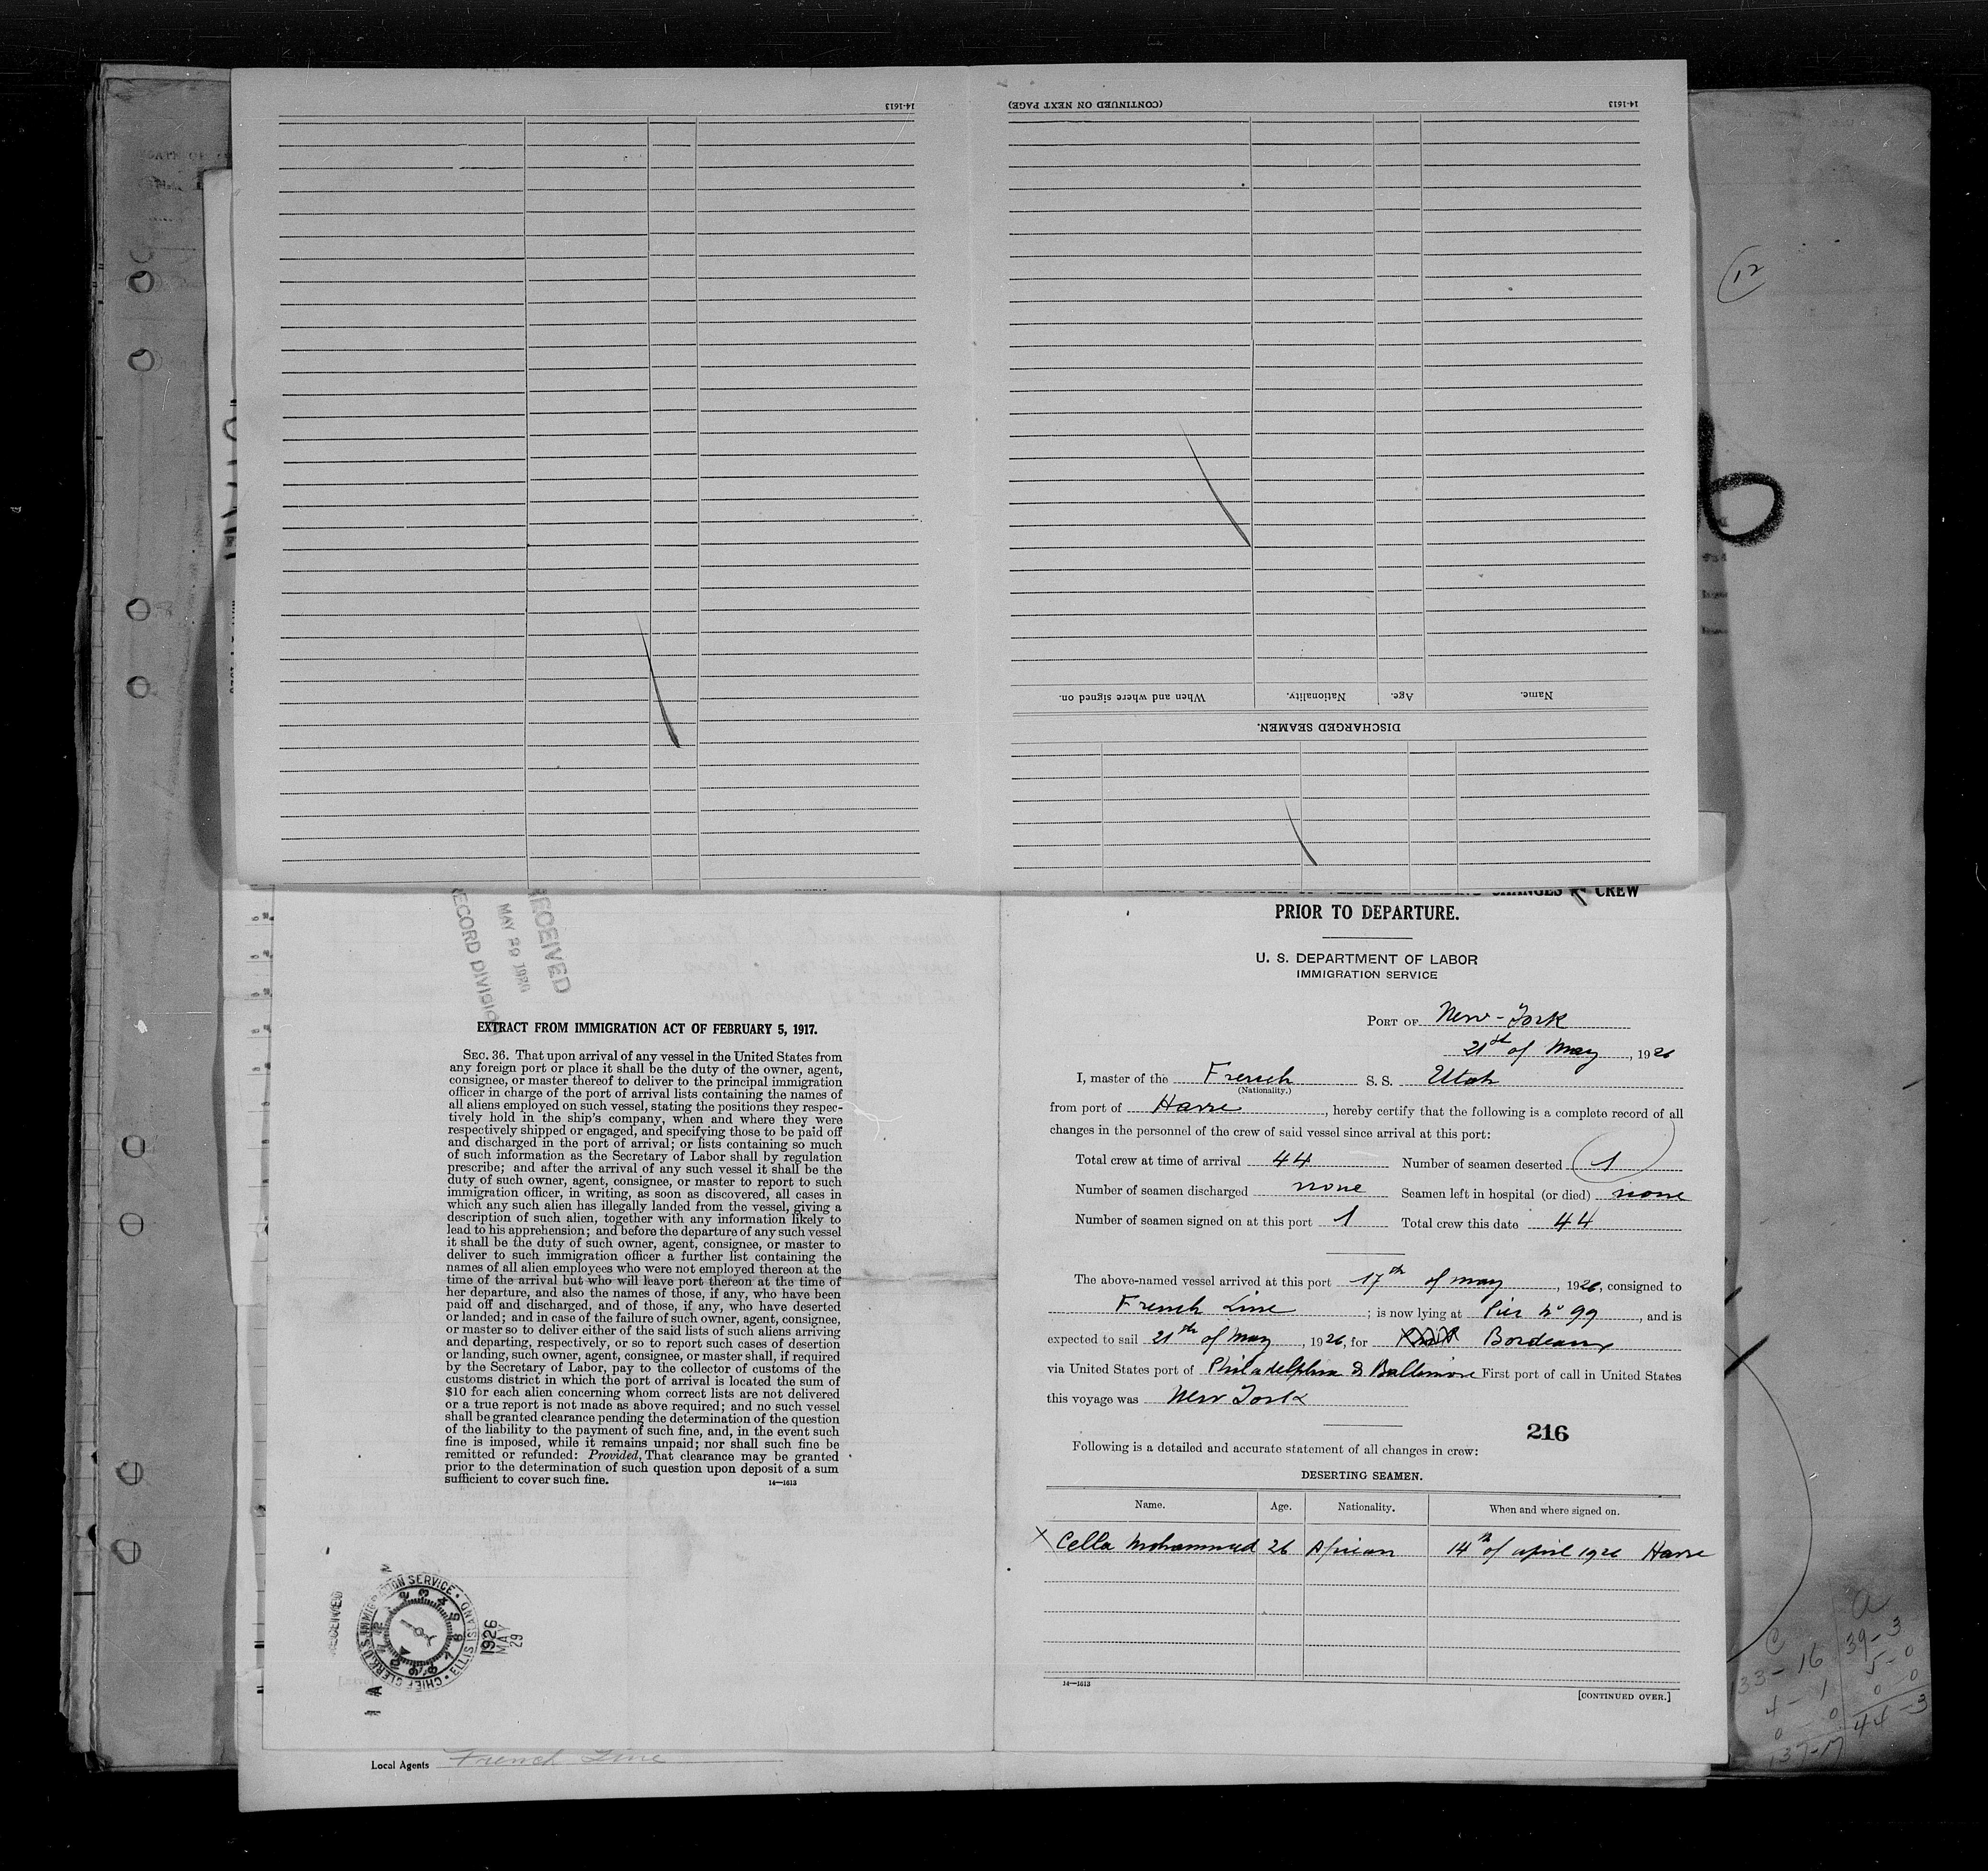 14-1613
(CONTINUED ON NEXT PAGE)
14-1613
When and where signed on.
Nationality.
Age.
Name.
DISCHARGED SEAMEN.
RECEIVED
MAY 29
RECORD DIVISIO
EXTRACT FROM IMMIGRATION ACT OF FEBRUARY 5, 1917.
SEC. 36. That upon arrival of any vessel in the United States from
any foreign port or place it shall be the duty of the owner, agent,
consignee, or master thereof to deliver to the principal immigration
officer in charge of the port of arrival lists containing the names of
all aliens employed on such vessel, stating the positions they respec-
tively hold in the ship's company, when and where they were
respectively shipped or engaged, and specifying those to be paid off
and discharged in the port of arrival; or lists containing so much
of such information as the Secretary of Labor shall by regulation
prescribe; and after the arrival of any such vessel it shall be the
duty of such owner, agent, consignee, or master to report to such
immigration officer, in writing, as soon as discovered, all cases in
which any such alien has illegally landed from the vessel, giving a
description of such alien, together with any information likely to
lead to his apprehension; and before the departure of any such vessel
it shall be the duty of such owner, agent, consignee, or master to
deliver to such immigration officer a further list containing the
names of all alien employees who were not employed thereon at the
time of the arrival but who will leave port thereon at the time of
her departure, and also the names of those, if any, who have been
paid off and discharged, and of those, if any, who have deserted
or landed; and in case of the failure of such owner, agent, consignee,
or master so to deliver either of the said lists of such aliens arriving
and departing, respectively, or so to report such cases of desertion
or landing, such owner, agent, consignee, or master shall, if required
by the Secretary of Labor, pay to the collector of customs of the
customs district in which the port of arrival is located the sum of
$10 for each alien concerning whom correct lists are not delivered
or a true report is not made as above required; and no such vessel
shall be granted clearance pending the determination of the question
of the liability to the payment of such fine, and, in the event such
fine is imposed, while it remains unpaid; nor shall such fine be
remitted or refunded: Provided, That clearance may be granted
prior to the determination of such question upon deposit of a sum
sufficient to cover such fine.
14—1613
RECEIVED
CHIEF CLERK U.S. IMMIGRATION SERVICE · ELLIS ISLAND
1926
MAY
29
Local Agents French Line
CHANGES CREW
PRIOR TO DEPARTURE.
U. S. DEPARTMENT OF LABOR
IMMIGRATION SERVICE
PORT OF New-York
21th of May, 1926
I, master of the French S. S. Utah
(Nationality.)
from port of Havre, hereby certify that the following is a complete record of all
changes in the personnel of the crew of said vessel since arrival at this port:
Total crew at time of arrival 44 Number of seamen deserted 1
Number of seamen discharged none Seamen left in hospital (or died) none
Number of seamen signed on at this port 1 Total crew this date 44
The above-named vessel arrived at this port 17th of may, 1926, consigned to
French Line; is now lying at Pier No 99, and is
expected to sail 21th of May, 1926, for Bordeaux
via United States port of Philadelphia & Baltimore First port of call in United States
this voyage was New York
216
Following is a detailed and accurate statement of all changes in crew:
DESERTING SEAMEN.
Name. Age. Nationality. When and where signed on.
X Cella Mohammed 26 African 14th of april 1926 Havre
14—1613
[CONTINUED OVER.]
12
6
C a
133-16 39-3
4-1 5-0
0 0 0 0
137-17 44-3